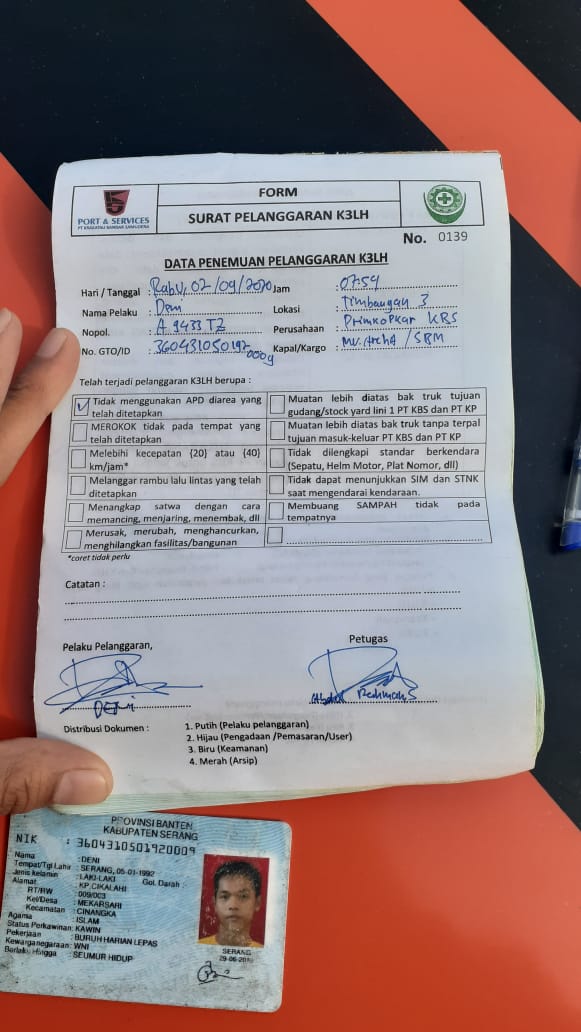 PORT & SERVICES
PT KRAKATAU BANDAR SAMUDERA
FORM
SURAT PELANGGARAN K3LH
No. 0139
DATA PENEMUAN PELANGGARAN K3LH
Hari / Tanggal : Rabu, 02/09/2020 Jam : 07:54
Nama Pelaku : Deni Lokasi : Timbangan 3
Nopol. : A 9433 TZ Perusahaan : Primkopkar KBS
No. GTO/ID : 3604310501920009 Kapal/Kargo : MV. / SBM
Telah terjadi pelanggaran K3LH berupa :
Tidak menggunakan APD diarea yang telah ditetapkan
Muatan lebih diatas bak truk tujuan gudang/stock yard lini 1 PT KBS dan PT KP
MEROKOK tidak pada tempat yang telah ditetapkan
Muatan lebih diatas bak truk tanpa terpal tujuan masuk-keluar PT KBS dan PT KP
Melebihi kecepatan {20} atau {40} km/jam*
Tidak dilengkapi standar berkendara (Sepatu, Helm Motor, Plat Nomor, dll)
Melanggar rambu lalu lintas yang telah ditetapkan
Tidak dapat menunjukkan SIM dan STNK saat mengendarai kendaraan.
Menangkap satwa dengan cara memancing, menjaring, menembak, dll
Membuang SAMPAH tidak pada tempatnya
Merusak, merubah, menghancurkan, menghilangkan fasilitas/bangunan
*coret tidak perlu
Catatan :
Pelaku Pelanggaran,
Petugas
DENI
Abdul Rachman S
Distribusi Dokumen :
1. Putih (Pelaku pelanggaran)
2. Hijau (Pengadaan /Pemasaran/User)
3. Biru (Keamanan)
4. Merah (Arsip)
PROVINSI BANTEN
KABUPATEN SERANG
NIK : 3604310501920009
Nama : DENI
Tempat/Tgl Lahir : SERANG, 05-01-1992
Jenis kelamin : LAKI-LAKI Gol. Darah :
Alamat : KP.CIKALAHI
RT/RW : 009/003
Kel/Desa : MEKARSARI
Kecamatan : CINANGKA
Agama : ISLAM
Status Perkawinan: KAWIN
Pekerjaan : BURUH HARIAN LEPAS
Kewarganegaraan: WNI
Berlaku Hingga : SEUMUR HIDUP
SERANG